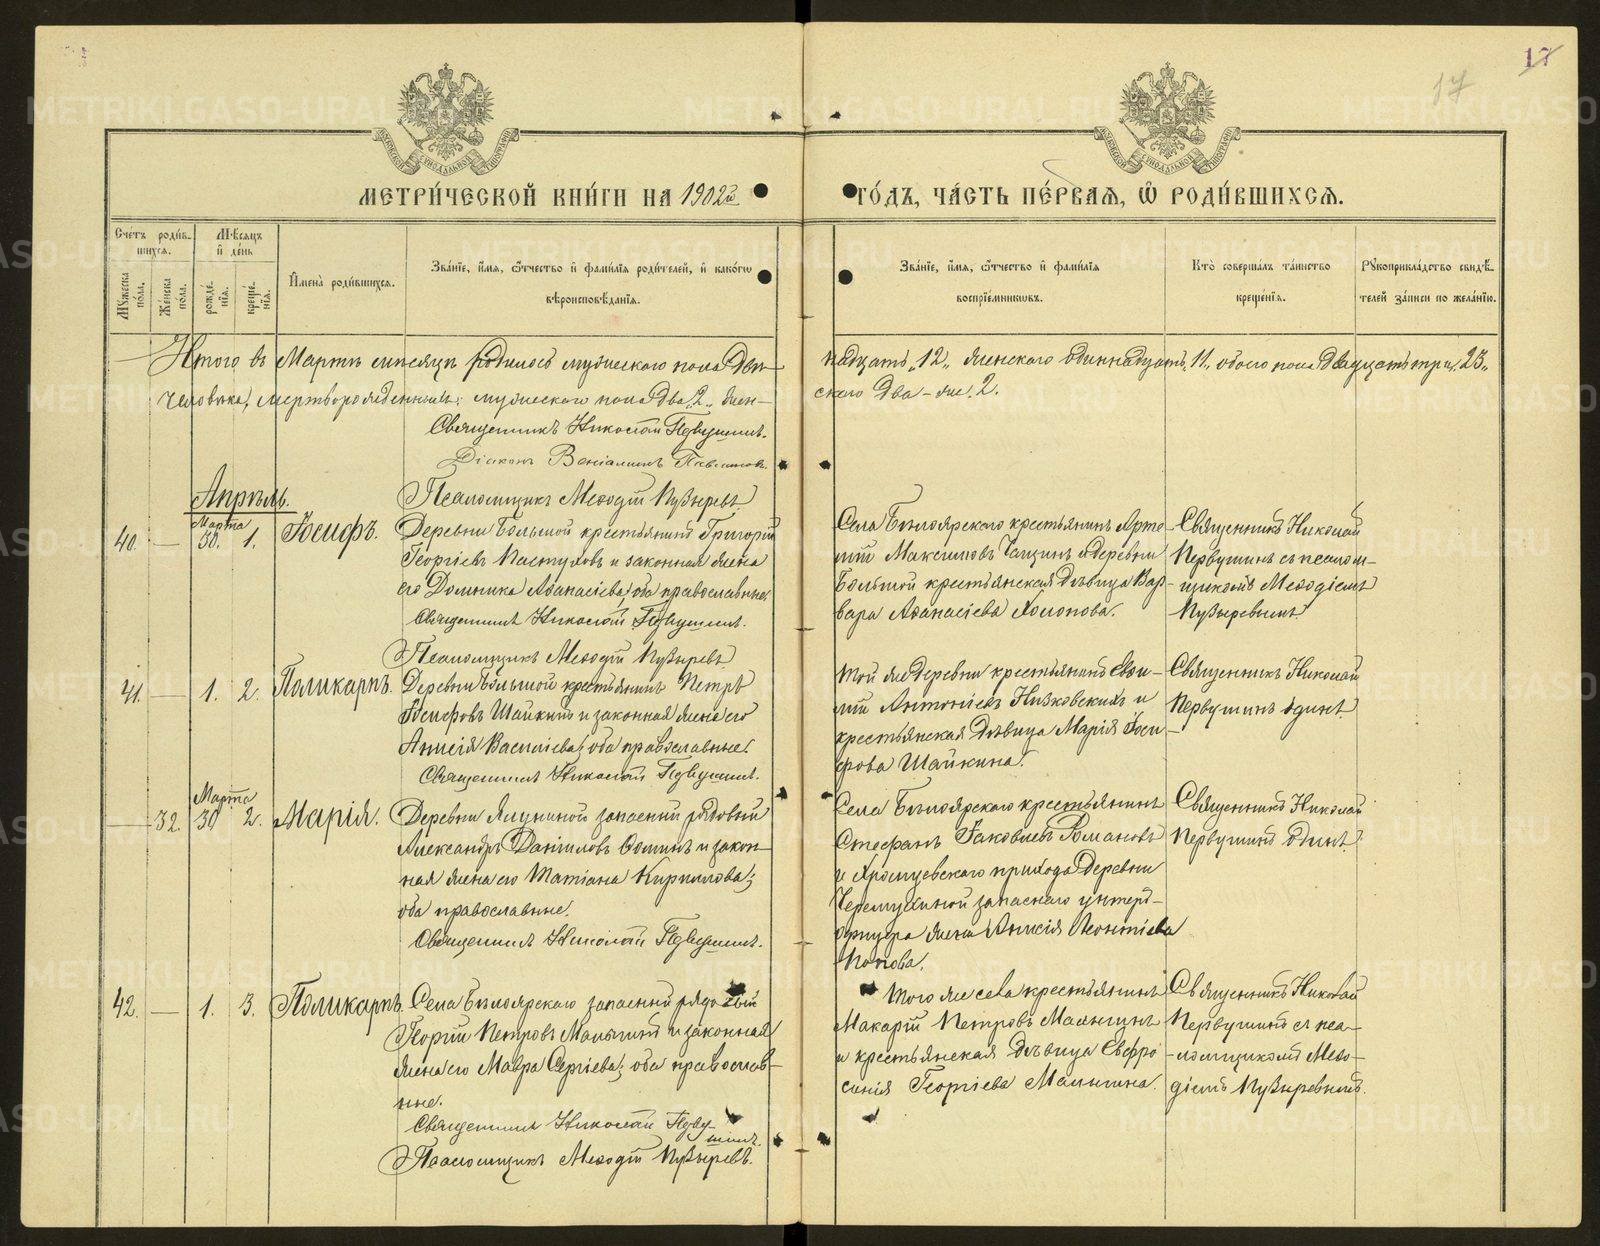 17
17
МЕТРИ́ЧЕСКОЙ КНИ́ГИ НА 1902й
ГО́ДЪ, ЧА́СТЬ ПЕ́РВАЯ, Ѽ РОДИ́ВШИХСЯ.
Сче́тъ роди́вшихся.
Мѣ́сяцъ и де́нь
Му́жеска по́ла.
Же́нска по́ла.
рожде́нїя.
креще́нїя.
И҆мена̀ роди́вшихся.
Зва́нїе, и҆́мя, ѻ҆́тчество и҆ фами́лїя роди́телей, и҆ како́гѡ
вѣроисповѣ́данїя.
Зва́нїе, и҆́мя, ѻ҆́тчество и҆ фами́лїя
воспрїе́мниковъ.
Кто̀ соверша́лъ та́инство
креще́нїя.
Рꙋкоприкла́дство свидѣ́-
телей за́писи по жела́нїю.
Итого въ Мартѣ мѣсяцѣ родилось мужескаго пола Двѣ-
надцать „12„ женскаго одиннадцать „11„ обоего пола Двадцать три „23„
человѣка, мертворожденныхъ: мужескаго пола два „2„ жен-
скаго Два - „2.
Священникъ Николай Первушинъ.
Діаконъ Веніаминъ
Псаломщикъ Меѳодій Пузыревъ
Апрѣль.
40. — Марта 30. 1. Іосифъ.
Деревни Большой крестьянинъ Григорій
Георгіевъ Пастуховъ и законная жена
его Домника Аѳанасіева; оба православные.
Священникъ Николай Первушинъ.
Псаломщикъ Меѳодій Пузыревъ
Села Бѣлоярскаго крестьянинъ Арте-
мій Максимовъ Чащинъ и деревни
Большой крестьянская дѣвица Вар-
вара Аѳанасіева Холопова.
Священникъ Николай
Первушинъ съ псалом-
щикомъ Меѳодіемъ
Пузыревымъ.
41. — 1. 2. Поликарпъ.
Деревни Большой крестьянинъ Петръ
Іосифовъ Шайкинъ и законная жена его
Анисія Василіева; оба православные.
Священникъ Николай Первушинъ.
Той же деревни крестьянинъ
Антоніевъ Низковскихъ и
крестьянская дѣвица Марія Іоси-
фова Шайкина.
Священникъ Николай
Первушинъ одинъ.
— 32. Марта 30 2. Марія.
Деревни Ялуниной запасный рядовый
Александръ Даніиловъ Ѳоминъ и закон-
ная жена его Татіана Кириллова;
оба православные.
Священникъ Николай Первушинъ.
Села Бѣлоярскаго крестьянинъ
Стефанъ Іаковлевъ Романовъ
и Хромцевскаго прихода деревни
Черемухиной запаснаго унтеръ-
офицера жена Анисія Леонтіева
Попова.
Священникъ Николай
Первушинъ одинъ.
42. — 1. 3. Поликарпъ.
Села Бѣлоярскаго запасный рядовый
Георгій Петровъ Малыгинъ и законная
жена его Мавра Сергіева; оба православ-
ные.
Священникъ Николай Перву-
шинъ.
Псаломщикъ Меѳодій Пузыревъ.
Того же села крестьянинъ
Макарій Петровъ Малыгинъ
и крестьянская дѣвица Евфро-
синія Георгіева Малыгина.
Священникъ Николай
Первушинъ съ пса-
ломщикомъ Меѳо-
діемъ Пузыревымъ.
METRIKI.GASO-URAL.RU